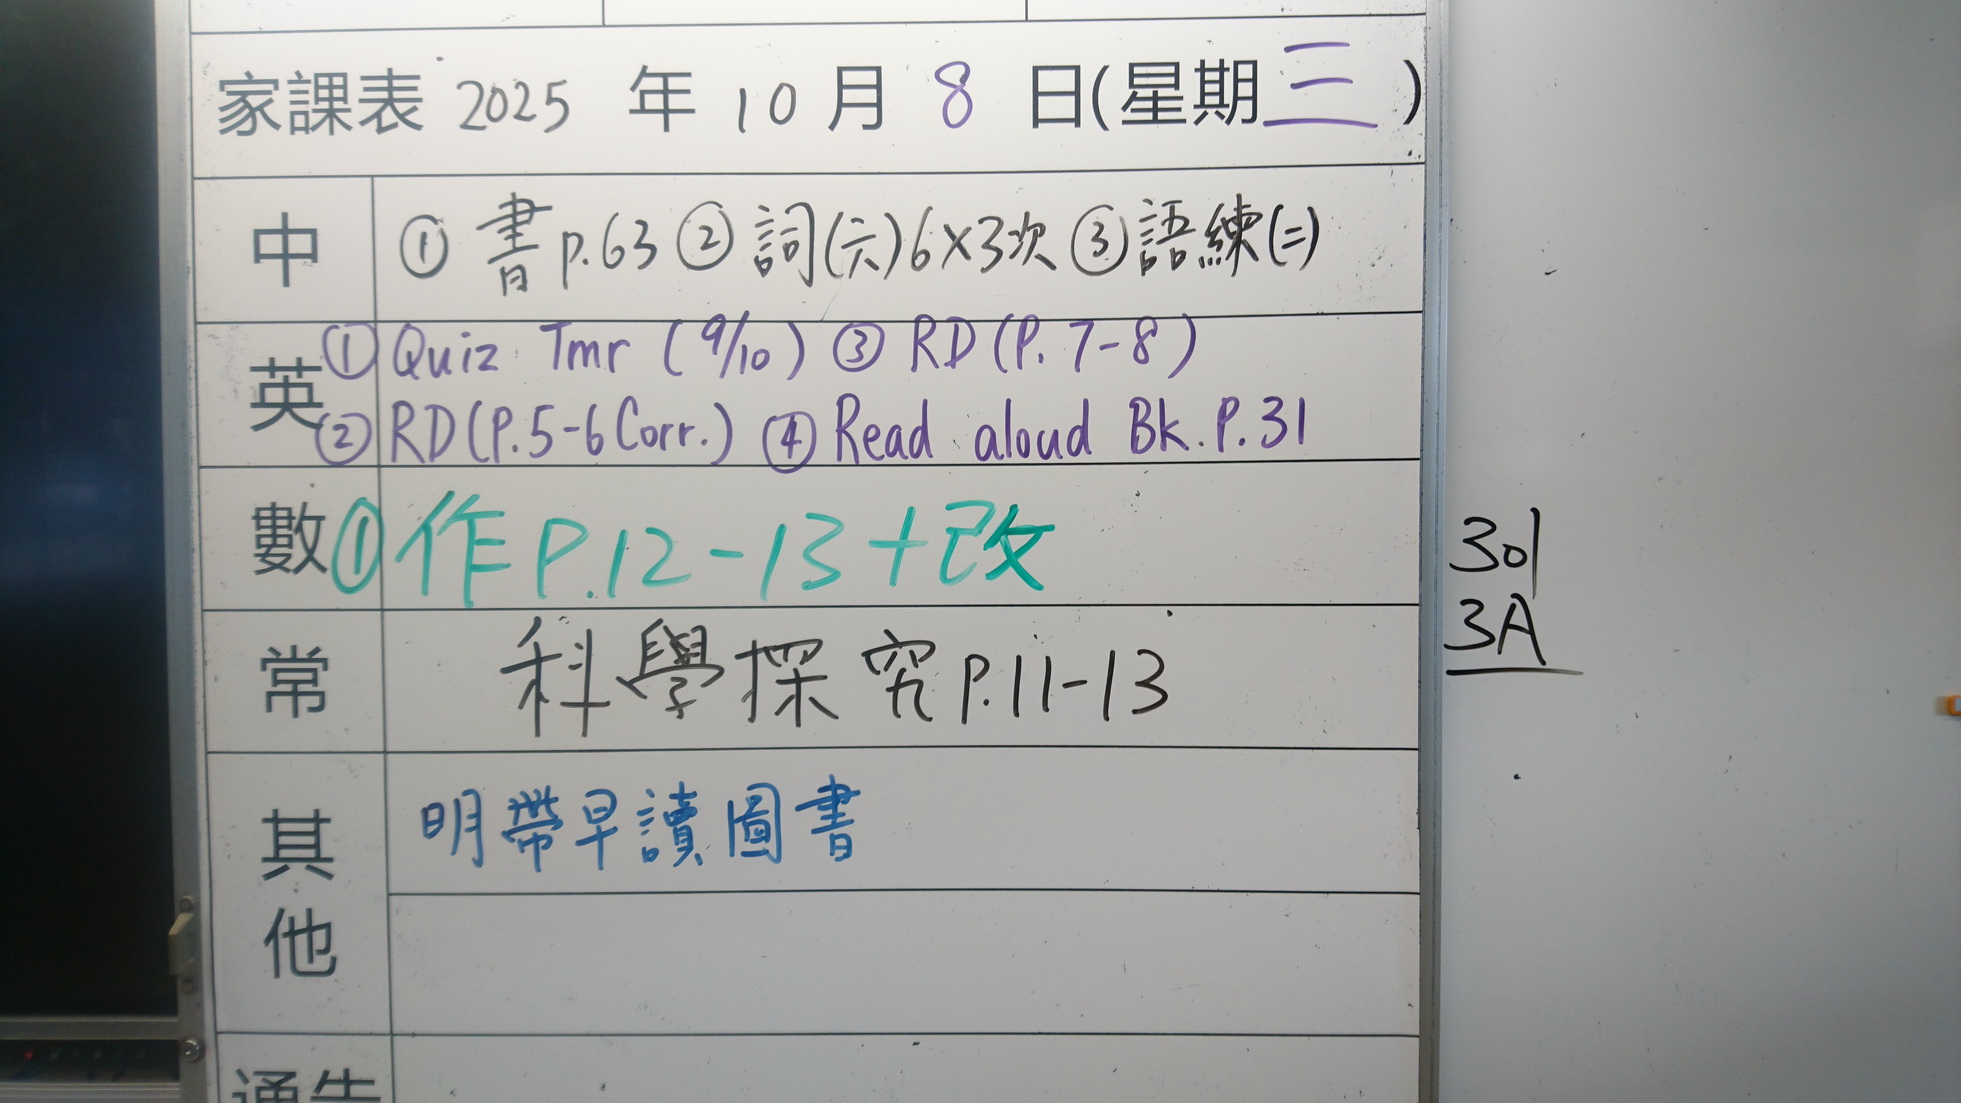 家課表 2025 年 10 月 8 日(星期三)
中 ① 書 p.63 ② 詞(六)6×3次 ③ 語練(二)
英 ① Quiz Tmr (9/10) ③ RD (P. 7-8)
② RD (P.5-6 Corr.) ④ Read aloud Bk. P.31
數 ① 作 P.12-13+改
常 科學探究 p.11-13
其他 明帶早讀圖書
通告
301
3A